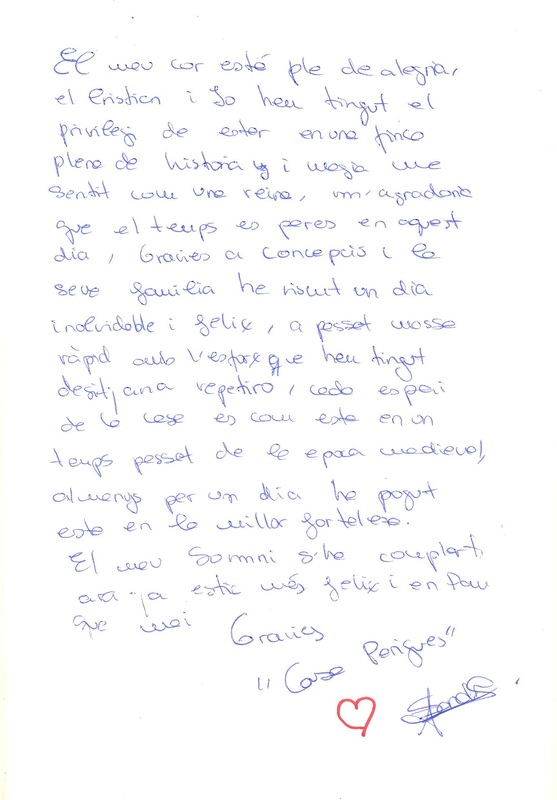 El meu cor esté ple de alegria,
el Cristian i Jo hem tingut el
privilegi de ester en una finca
plena de historia i magia me
sentit com una reina, m'agradaria
que el temps es peres en aquest
dia, Gracies a Concepció i la
seve familia he viscut un dia
inolvidable i felix, a passat masse
ràpid amb l'esforç que hem tingut
desitjaria repetiro, cada espai
de la case es com este en un
temps passat de la epoca medieval,
almenys per un dia he pogut
este en la millor fortalese.
El meu Somni s'he complert,
ara ja estic més felix i en Pau
que mai Gracies
"Casa Perigues"